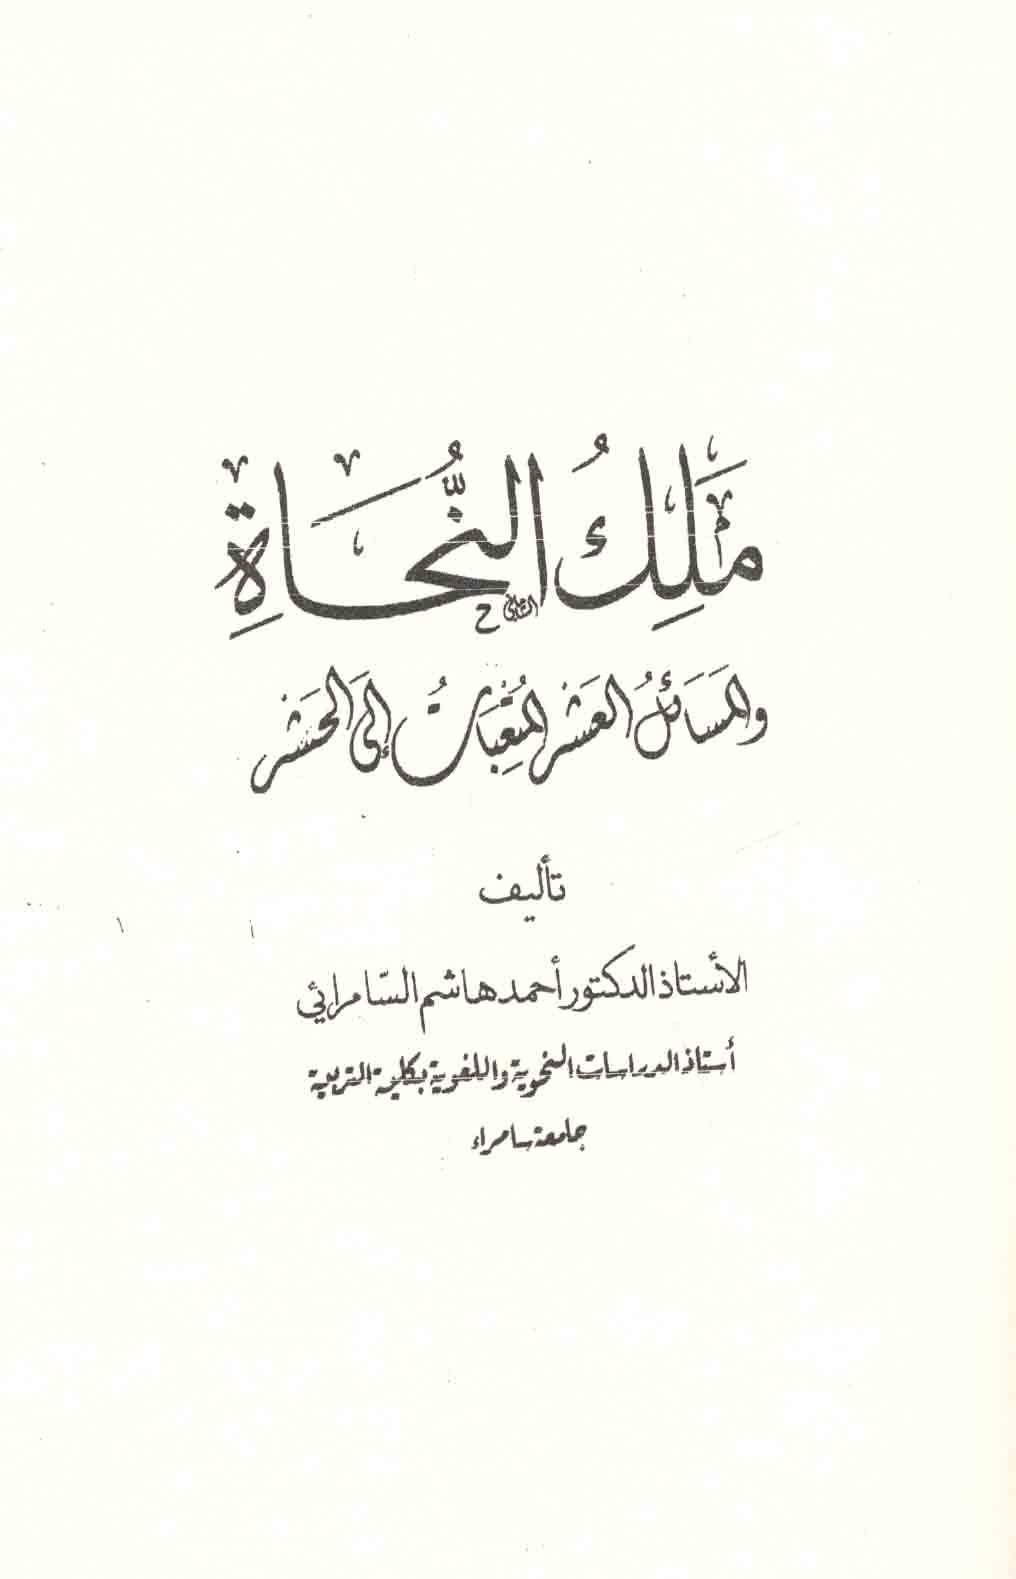 مَلِكُ النُّحَاةِ
والمَسَائلُ العَشْر المُتْعِبَاتُ إلَى الحَشْر
تأليف
الأستاذ الدكتور أحمد هاشم السّامرائي
أستاذ الدراسات النحوية واللغوية بكلية التربية
جامعة سامراء